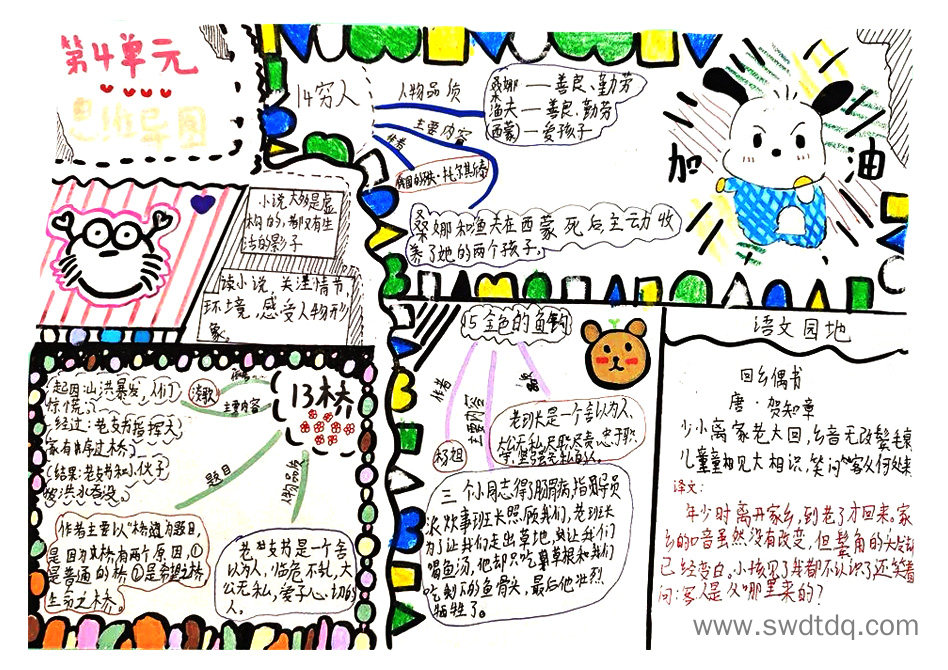 第4单元
思维导图
14穷人
人物品质
桑娜——善良、勤劳
渔夫——善良、勤劳
西蒙——爱孩子
主要内容
作者
桑娜和渔夫在西蒙死后主动收
养了她的两个孩子。
加油
小说大多是虚
构的,却又有生
活的影子
读小说,关注情节、
环境,感受人物形
象。
13桥
谈歌
作者
主要内容
起因:山洪暴发,人们
惊慌。
经过:老支书指挥大
家有序过桥
结果:老支书和小伙子
被洪水吞没。
题目
人物品质
作者主要以"桥"为题目,
是因为桥有两个原因,①
是普通的桥②是希望之桥
生命之桥。
老支书是一个舍
以为人,临危不乱,大
公无私,爱子心切的
人。
15金色的鱼钩
作者
主要内容
杨旭
老班长是一个舍以为人、
三个小同志得了肠胃病,指导员
派炊事班长照顾我们,老班长
为了让我们走出草地,并让我们
喝鱼汤,他却只吃草根和我们
吃剩下的鱼骨头,最后他壮烈
牺牲了。
语文园地
回乡偶书
唐·贺知章
少小离家老大回,乡音无改鬓毛衰
儿童相见大相识,笑问客从何处来
译文:
年少时离开家乡,到老了才回来。家
乡的口音虽然没有改变,但鬓角的头发却
已经变白。小孩见了我都不认识了还笑着
问:客人是从哪里来的?
www.swdtdq.com